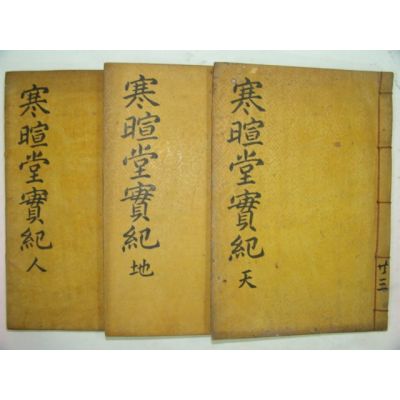 寒暄堂實紀 天
共三
寒暄堂實紀 地
寒暄堂實紀 人